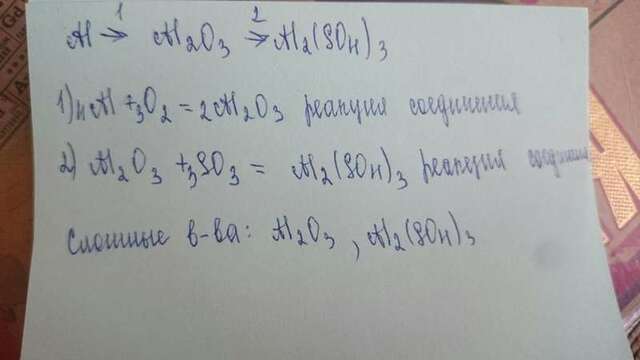 1 2
Al → Al2O3 → Al2(SO4)3
1) 4Al + 3O2 = 2Al2O3 реакция соединения
2) Al2O3 + 3SO3 = Al2(SO4)3 реакция соединения
Сложные в-ва: Al2O3, Al2(SO4)3